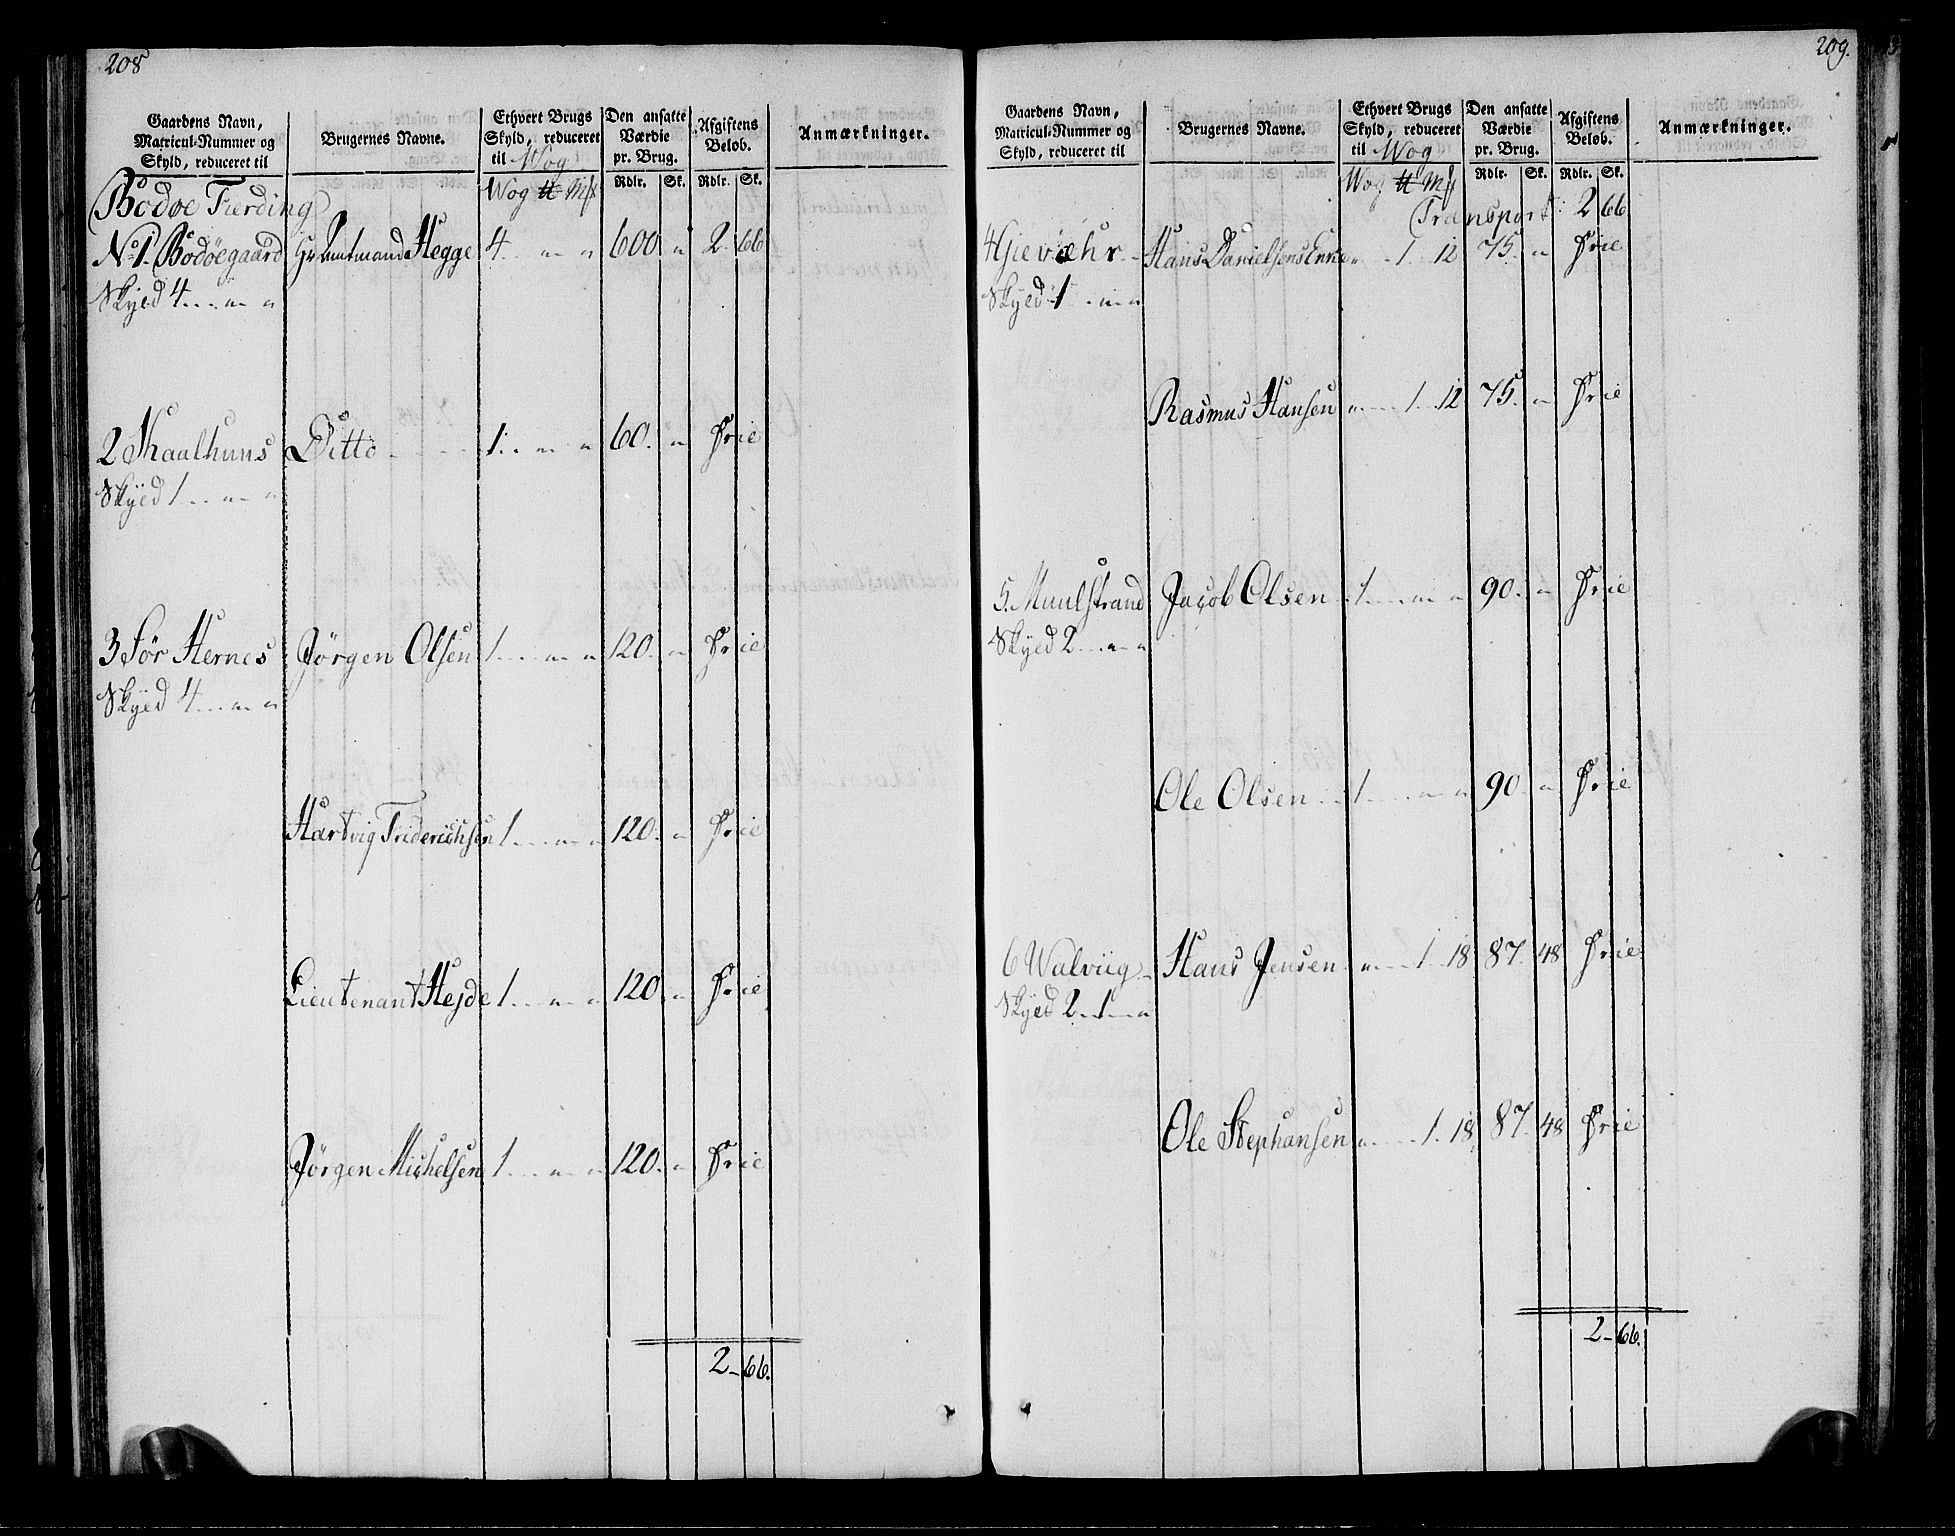 208
Gaardens Navn, Matricul-Nummer og Skyld, reduceret til
Brugernes Navne.
Ethvert Brugs Skyld, reduceret til Wog
Den ansatte Værdie pr. Brug.
Afgiftens Beløb.
Anmærkninger.
Wog ℔ Mk Rdlr. Sk. Rdlr. Sk.
Bodøe Fierding
No 1. Bodöegaard Hr Amtmand Hegge 4 " " 600 " 2 66
Skyed 4 . . . " "
2 Skaalhuns Ditto 1 " " 60. " Frie
Skÿed 1 . . " "
3 Sør Hernes Jørgen Olsen 1 " " 120. " Frie
Skÿed 4 . . . " "
Hartvig Friderichsen 1 " " 120. " Frie
Lieutenant Hejde 1 " " 120. " Frie
Jørgen Michelsen 1 " " 120. " Frie
2 - 66.
209.
Gaardens Navn, Matricul-Nummer og Skyld, reduceret til
Brugernes Navne.
Ethvert Brugs Skyld, reduceret til Wog
Den ansatte Værdie pr. Brug.
Afgiftens Beløb.
Anmærkninger.
Wog ℔ Mk Rdlr. Sk. Rdlr. Sk.
Transport: 2 66
4 Gjeværhr Hans Danielsens Enke " 1 12 75. " Frie
Skyed 1 . . " "
Rasmus Hansen " 1 12 75. " Frie
5. Muulstrand Jacob Olsen 1 " " 90. " Frie
Skyed 2 . . " "
Ole Olsen 1 " " 90 " Frie
6 Walviig Hans Jensen " 1 18 87. 48 Frie
Skyed 2 . 1 . "
Ole Stephansen " 1. 18 87. 48 Frie
2 - 66.